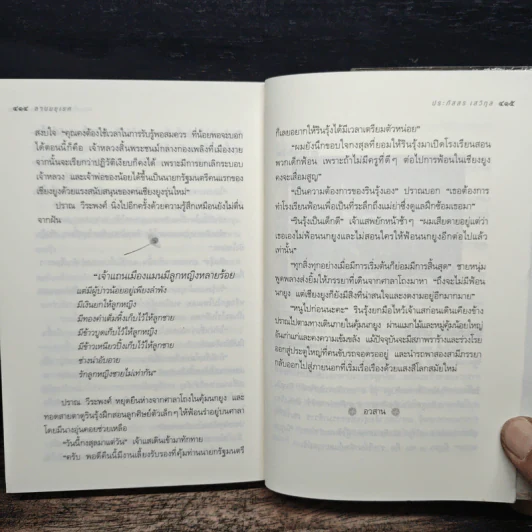 ๔๑๔ สาบนกยูงทอ
สงบใจ “คุณคงต้องใช้เวลาในการรับรู้พอสมควร ที่น้อยพอจะบอก
ได้ตอนนี้ก็คือ เจ้าหลวงสิ้นพระชนม์กลางกองเพลิงที่เมืองงาย
จากนั้นจะเรียกว่าปฏิวัติเงียบก็คงได้ เพราะมีการยกเลิกระบอบ
เจ้าหลวง และเจ้าพ่อของน้อยได้ขึ้นเป็นนายกรัฐมนตรีคนแรกของ
เชียงยูงด้วยแรงสนับสนุนของคนเชียงยูงรุ่นใหม่”
ปราณ วีระพงศ์ นิ่งไปอีกครั้งด้วยความรู้สึกเหมือนยังไม่ตื่น
จากฝัน
“เจ้าแถนเมืองแมนมีลูกหญิงหลายร้อย
แต่มีผู้บ่าวน้อยอยู่เพียงลำพัง
มีเงินยกให้ลูกหญิง
มีทองคำเต็มทิ้งเก็บไว้ให้ลูกชาย
มีข้าวบูดเก็บไว้ให้ลูกหญิง
มีข้าวเหนียวปิ้งเก็บไว้ให้ลูกชาย
ช่างน่าอับอาย
รักลูกหญิงชายไม่เท่ากัน”
ปราณ วีระพงศ์ หยุดยืนห่างจากศาลาโถงในคุ้มนกยูง และ
ทอดสายตาดูรินรุ้งฝึกสอนลูกศิษย์ตัวเล็กๆ ให้ฟ้อนรำอยู่บนศาลา
โดยมีนางอุ่นคอยช่วยเหลือ
“วันนี้กงสุลมาแต่วัน” เจ้าแสเดินเข้ามาทักทาย
“ครับ พอดีคืนนี้มีงานเลี้ยงรับรองที่คุ้มท่านนายกรัฐมนตรี
ประภัสสร เสวิกุล ๔๑๕
ก็เลยอยากให้รินรุ้งได้มีเวลาเตรียมตัวหน่อย”
“ผมยังนึกขอบใจกงสุลที่ยอมให้รินรุ้งมาเปิดโรงเรียนสอน
พวกเด็กฟ้อน เพราะถ้าไม่มีครูที่ดีๆ ต่อไปการฟ้อนในเชียงยูง
คงจะเสื่อมสูญ”
“เป็นความต้องการของรินรุ้งเอง” ปราณบอก “เธอต้องการ
ทำโรงเรียนฟ้อนเพื่อเป็นที่ระลึกถึงแม่เฒ่าซึ่งดูแลฝึกซ้อมเธอมา”
“รินรุ้งเป็นเด็กดี” เจ้าแสพยักหน้าช้าๆ “ผมเสียดายอยู่แต่ว่า
เธอเองไม่ฟ้อนนกยูงและไม่สอนใครให้ฟ้อนนกยูงอีกต่อไปแล้ว
เท่านั้น”
“ทุกสิ่งทุกอย่างเมื่อมีการเริ่มต้นก็ย่อมมีการสิ้นสุด” ชายหนุ่ม
พูดพลางส่งยิ้มให้ภรรยาที่เดินจากศาลาโถงมาหา “ถึงจะไม่มีฟ้อน
นกยูง แต่เชียงยูงก็ยังมีสิ่งที่น่าสนใจและงดงามอยู่อีกมากมาย”
“หนูไปก่อนนะคะ” รินรุ้งยกมือไหว้เจ้าแสก่อนเดินเคียงข้าง
ปราณไปตามทางเดินภายในคุ้มนกยูง ผ่านแมกไม้และหมู่ตึกน้อยใหญ่
อันเก่าแก่และงดงามความเข้มขลัง แม้ปัจจุบันจะมีสภาพรกร้างและร่วงโรย
ออกสู่ประตูใหญ่ที่คนขับรถจอดรออยู่ และนำรถพาสองสามีภรรยา
กลับออกไปสู่ภายนอกที่เริ่มเรื่อเรืองด้วยแสงสีโลกสมัยใหม่
อวสาน